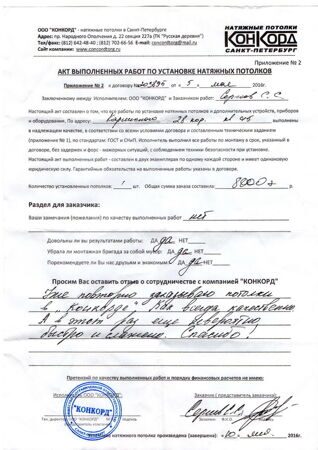 ООО "КОНКОРД" - натяжные потолки в Санкт-Петербурге
Адрес: пр. Народного-Ополчения д. 22 секция 227а (ТК "Русская деревня")
Тел/факс: (812) 642-48-40 ; (812) 703-66-56 E-mail: concordtorg@mail.ru
Сайт компании: www.concordtorg.ru
НАТЯЖНЫЕ ПОТОЛКИ
КОНКОРД
САНКТ-ПЕТЕРБУРГ
Приложение № 2
АКТ ВЫПОЛНЕННЫХ РАБОТ ПО УСТАНОВКЕ НАТЯЖНЫХ ПОТОЛКОВ
Приложение № 2 к договору № от " 5 " мая 201 г.
Заключенному между Исполнителем: ООО "КОНКОРД" и Заказчиком работ: С.С.
Настоящий акт составлен о том, что все работы по установке натяжных потолков и дополнительных устройств, приборов
и оборудования. По адресу: выполнены
в надлежащем качестве, в соответствии со всеми условиями договора и составленным техническим заданием
(приложение № 1), по стандартам: ГОСТ и СНиП. Исполнитель выполнил все работы по монтажу в срок, указанный в
договоре, без задержек и форс - мажорных ситуаций, с соблюдением техники безопасности при установке.
Настоящий акт выполненных работ - составлен в двух экземплярах по одному каждой стороне и имеют одинаковую
юридическую силу. Гарантийные обязательства на выполненные работы указаны в договоре.
Количество установленных потолков: 1 шт. Общая сумма заказа составила:
Раздел для заказчика:
Ваши замечания (пожелания) по качеству выполненных работ нет
Довольны ли вы результатами работы: ДА да НЕТ
Убрала ли монтажная бригада за собой мусор: ДА да НЕТ
Порекомендуете ли Вы нас друзьям и знакомым: ДА да НЕТ
Просим Вас оставить отзыв о сотрудничестве с компанией "КОНКОРД"
Уже повторно заказываю потолки
в "Конкорде". Всё всегда качественно.
А в этот раз еще невероятно
быстро и слаженно. Спасибо!
Претензий по качеству выполненных работ и порядку финансовых расчетов не имею.
Исполнитель ООО "КОНКОРД"
Заказчик ( представитель заказчика ):
"КОНКОРД"
Установка натяжного потолка произведена (завершена): «10» мая 201 г.